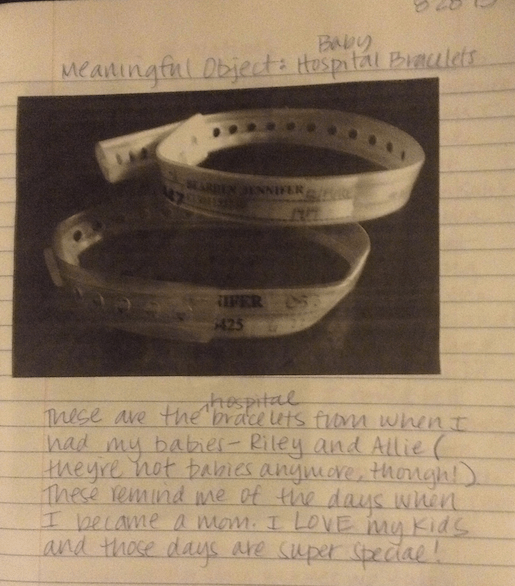 Baby
Meaningful Object: Hospital Bracelets
BEARDEN JENNIFER
47
IFER
5425
hospital
These are the bracelets from when I
had my babies - Riley and Allie (
they're not babies anymore, though!)
These remind me of the days when
I became a mom. I LOVE my kids
and those days are super special!